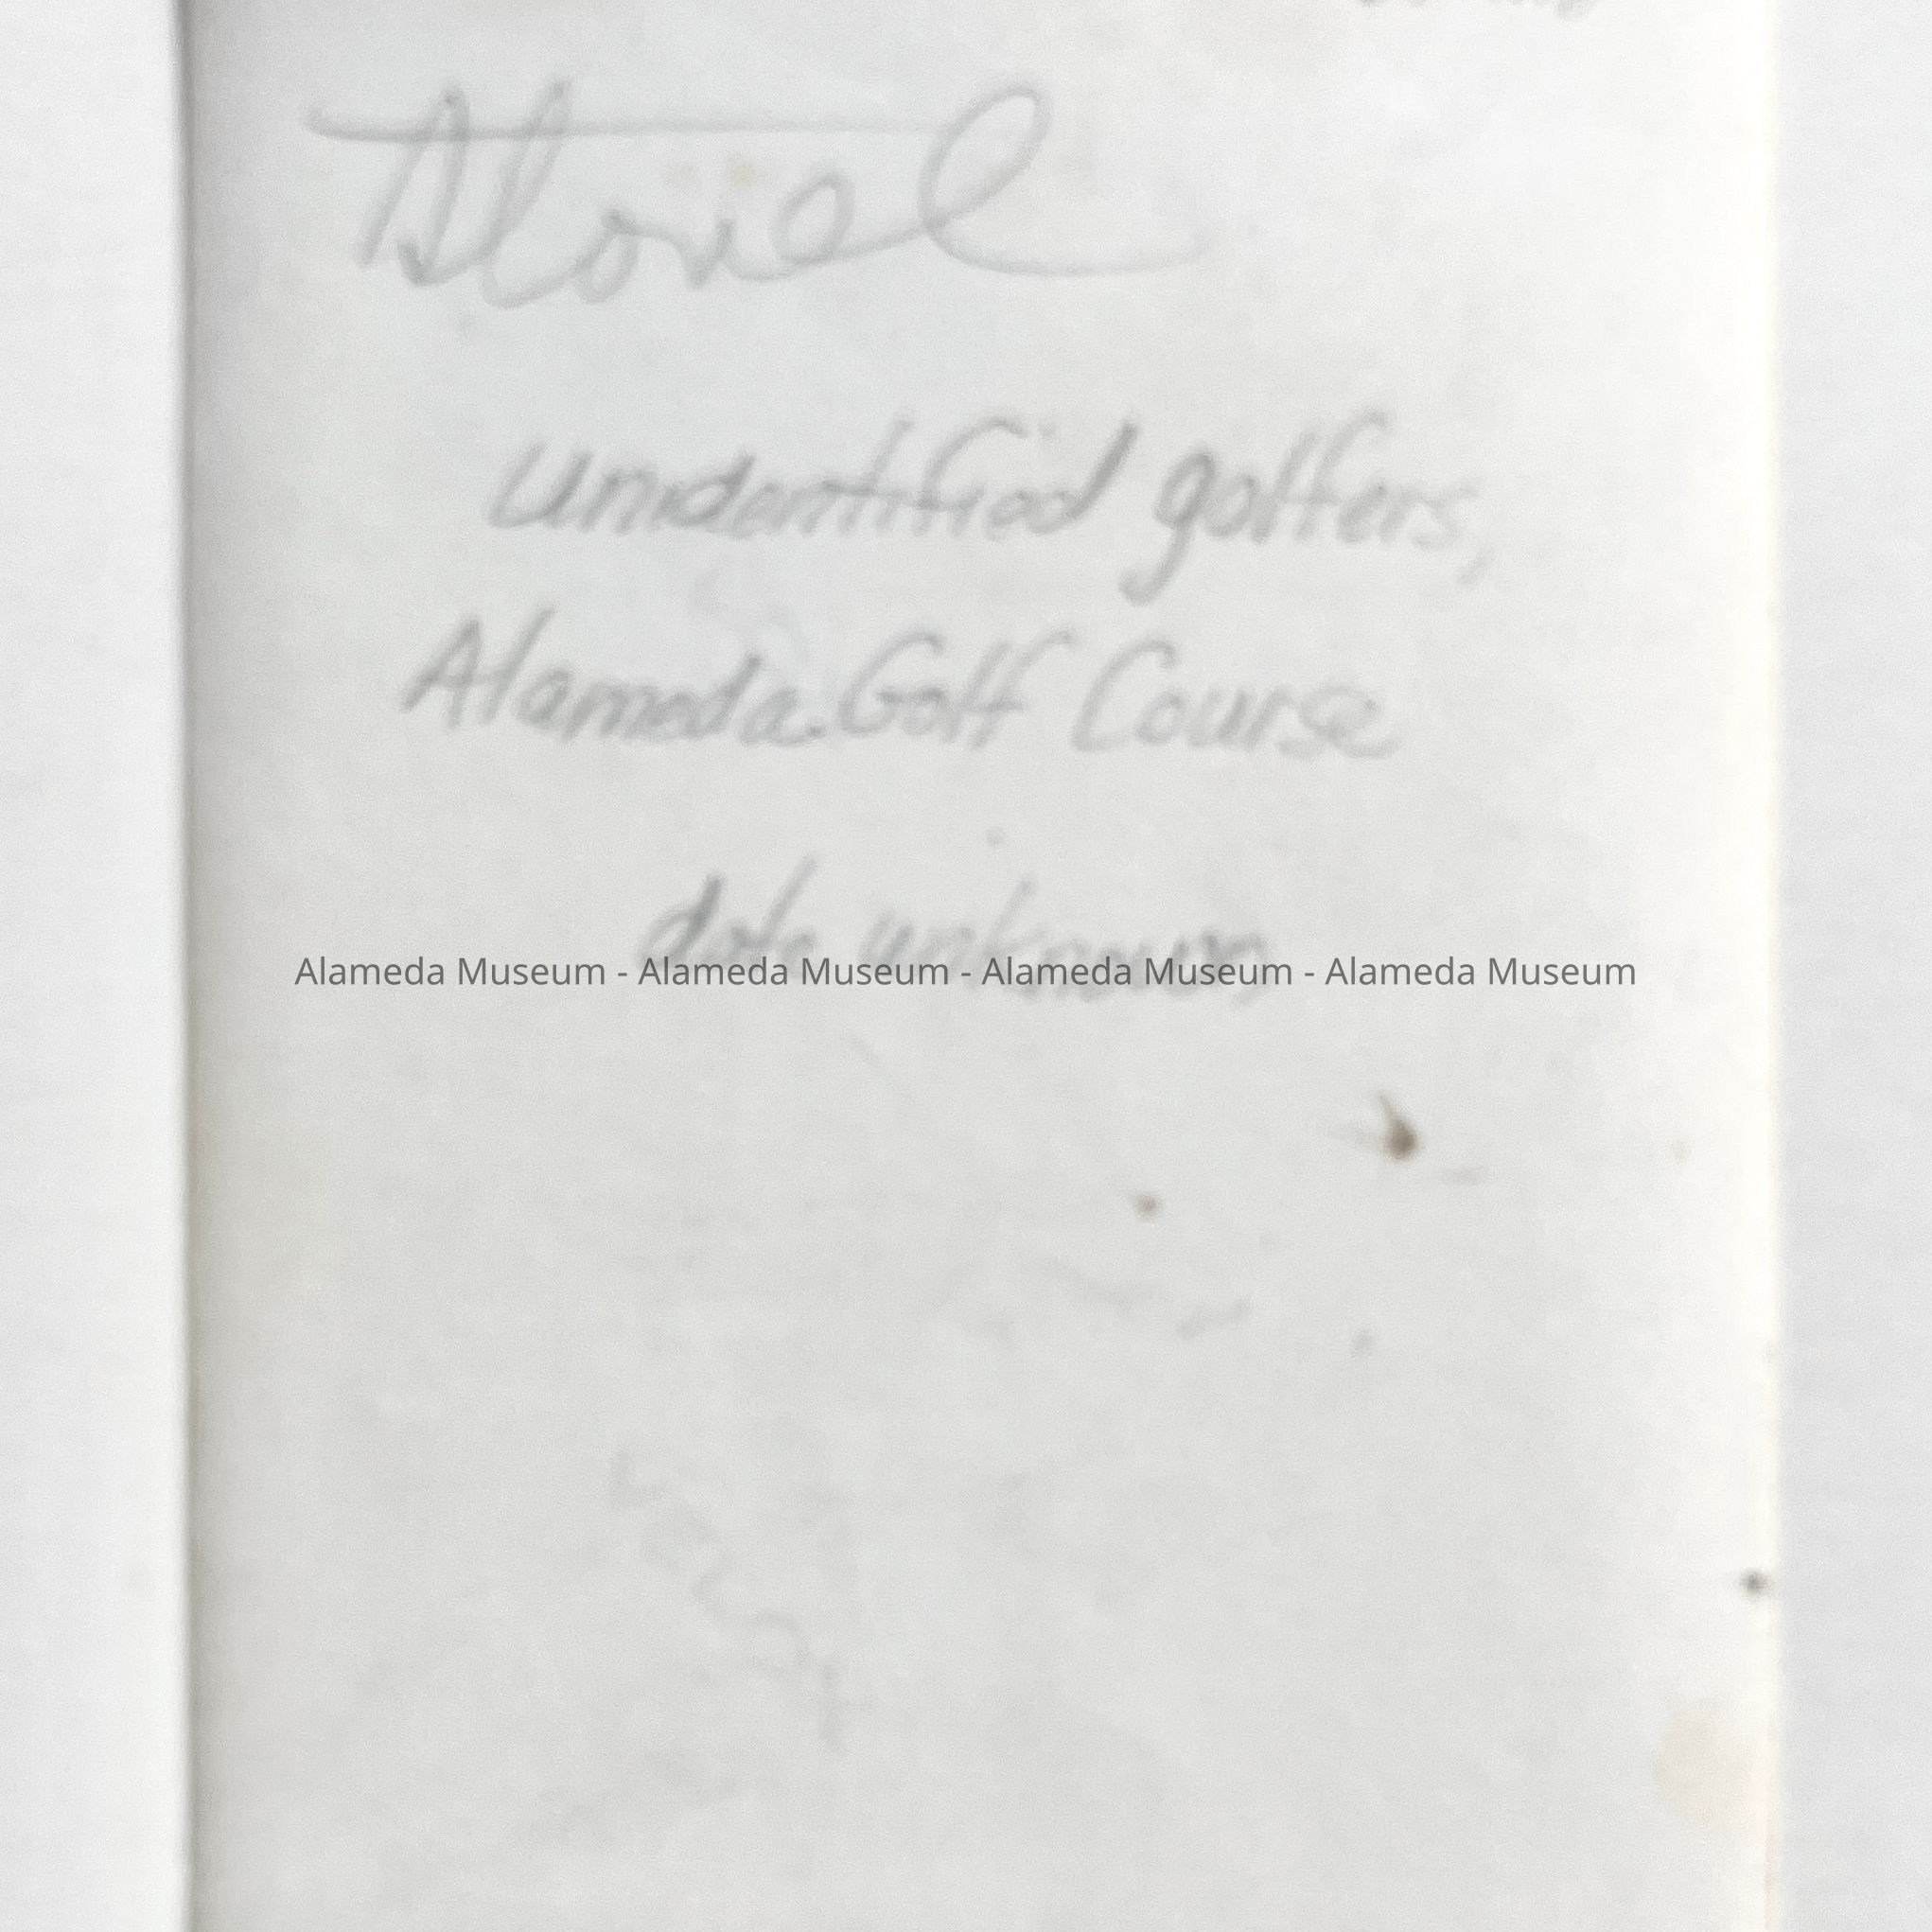 unidentified golfers,
Alameda Golf Course
date unknown
Alameda Museum - Alameda Museum - Alameda Museum - Alameda Museum